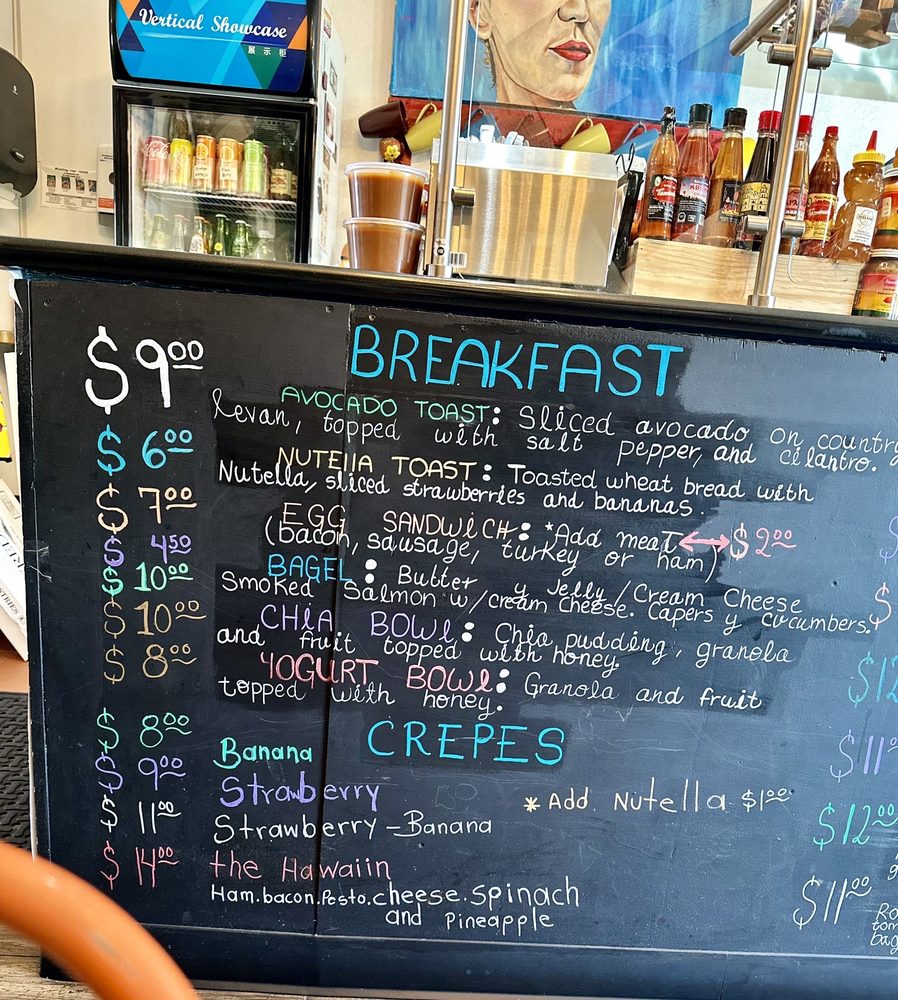 Vertical Showcase
展示柜
BREAKFAST
$9.00 AVOCADO TOAST: Sliced avocado on country
levan, topped with salt pepper, and cilantro.
$6.00 NUTELLA TOAST: Toasted wheat bread with
Nutella, sliced strawberries and bananas
$7.00 EGG SANDWICH: *Add meat ↔ $2.00
(bacon, sausage, turkey or ham)
$4.50 BAGEL: Butter y Jelly/Cream Cheese
$10.00 Smoked Salmon w/cream cheese. Capers y cucumbers.
$10.00 CHIA BOWL: Chia pudding, granola
and fruit topped with honey.
$8.00 YOGURT BOWL: Granola and fruit
topped with honey.
CREPES
$8.00 Banana
$9.00 Strawberry
*Add Nutella $1.00
$11.00 Strawberry-Banana
$14.00 the Hawaiin
Ham.bacon.Pesto.cheese.spinach
and Pineapple
$12.00
$11.00